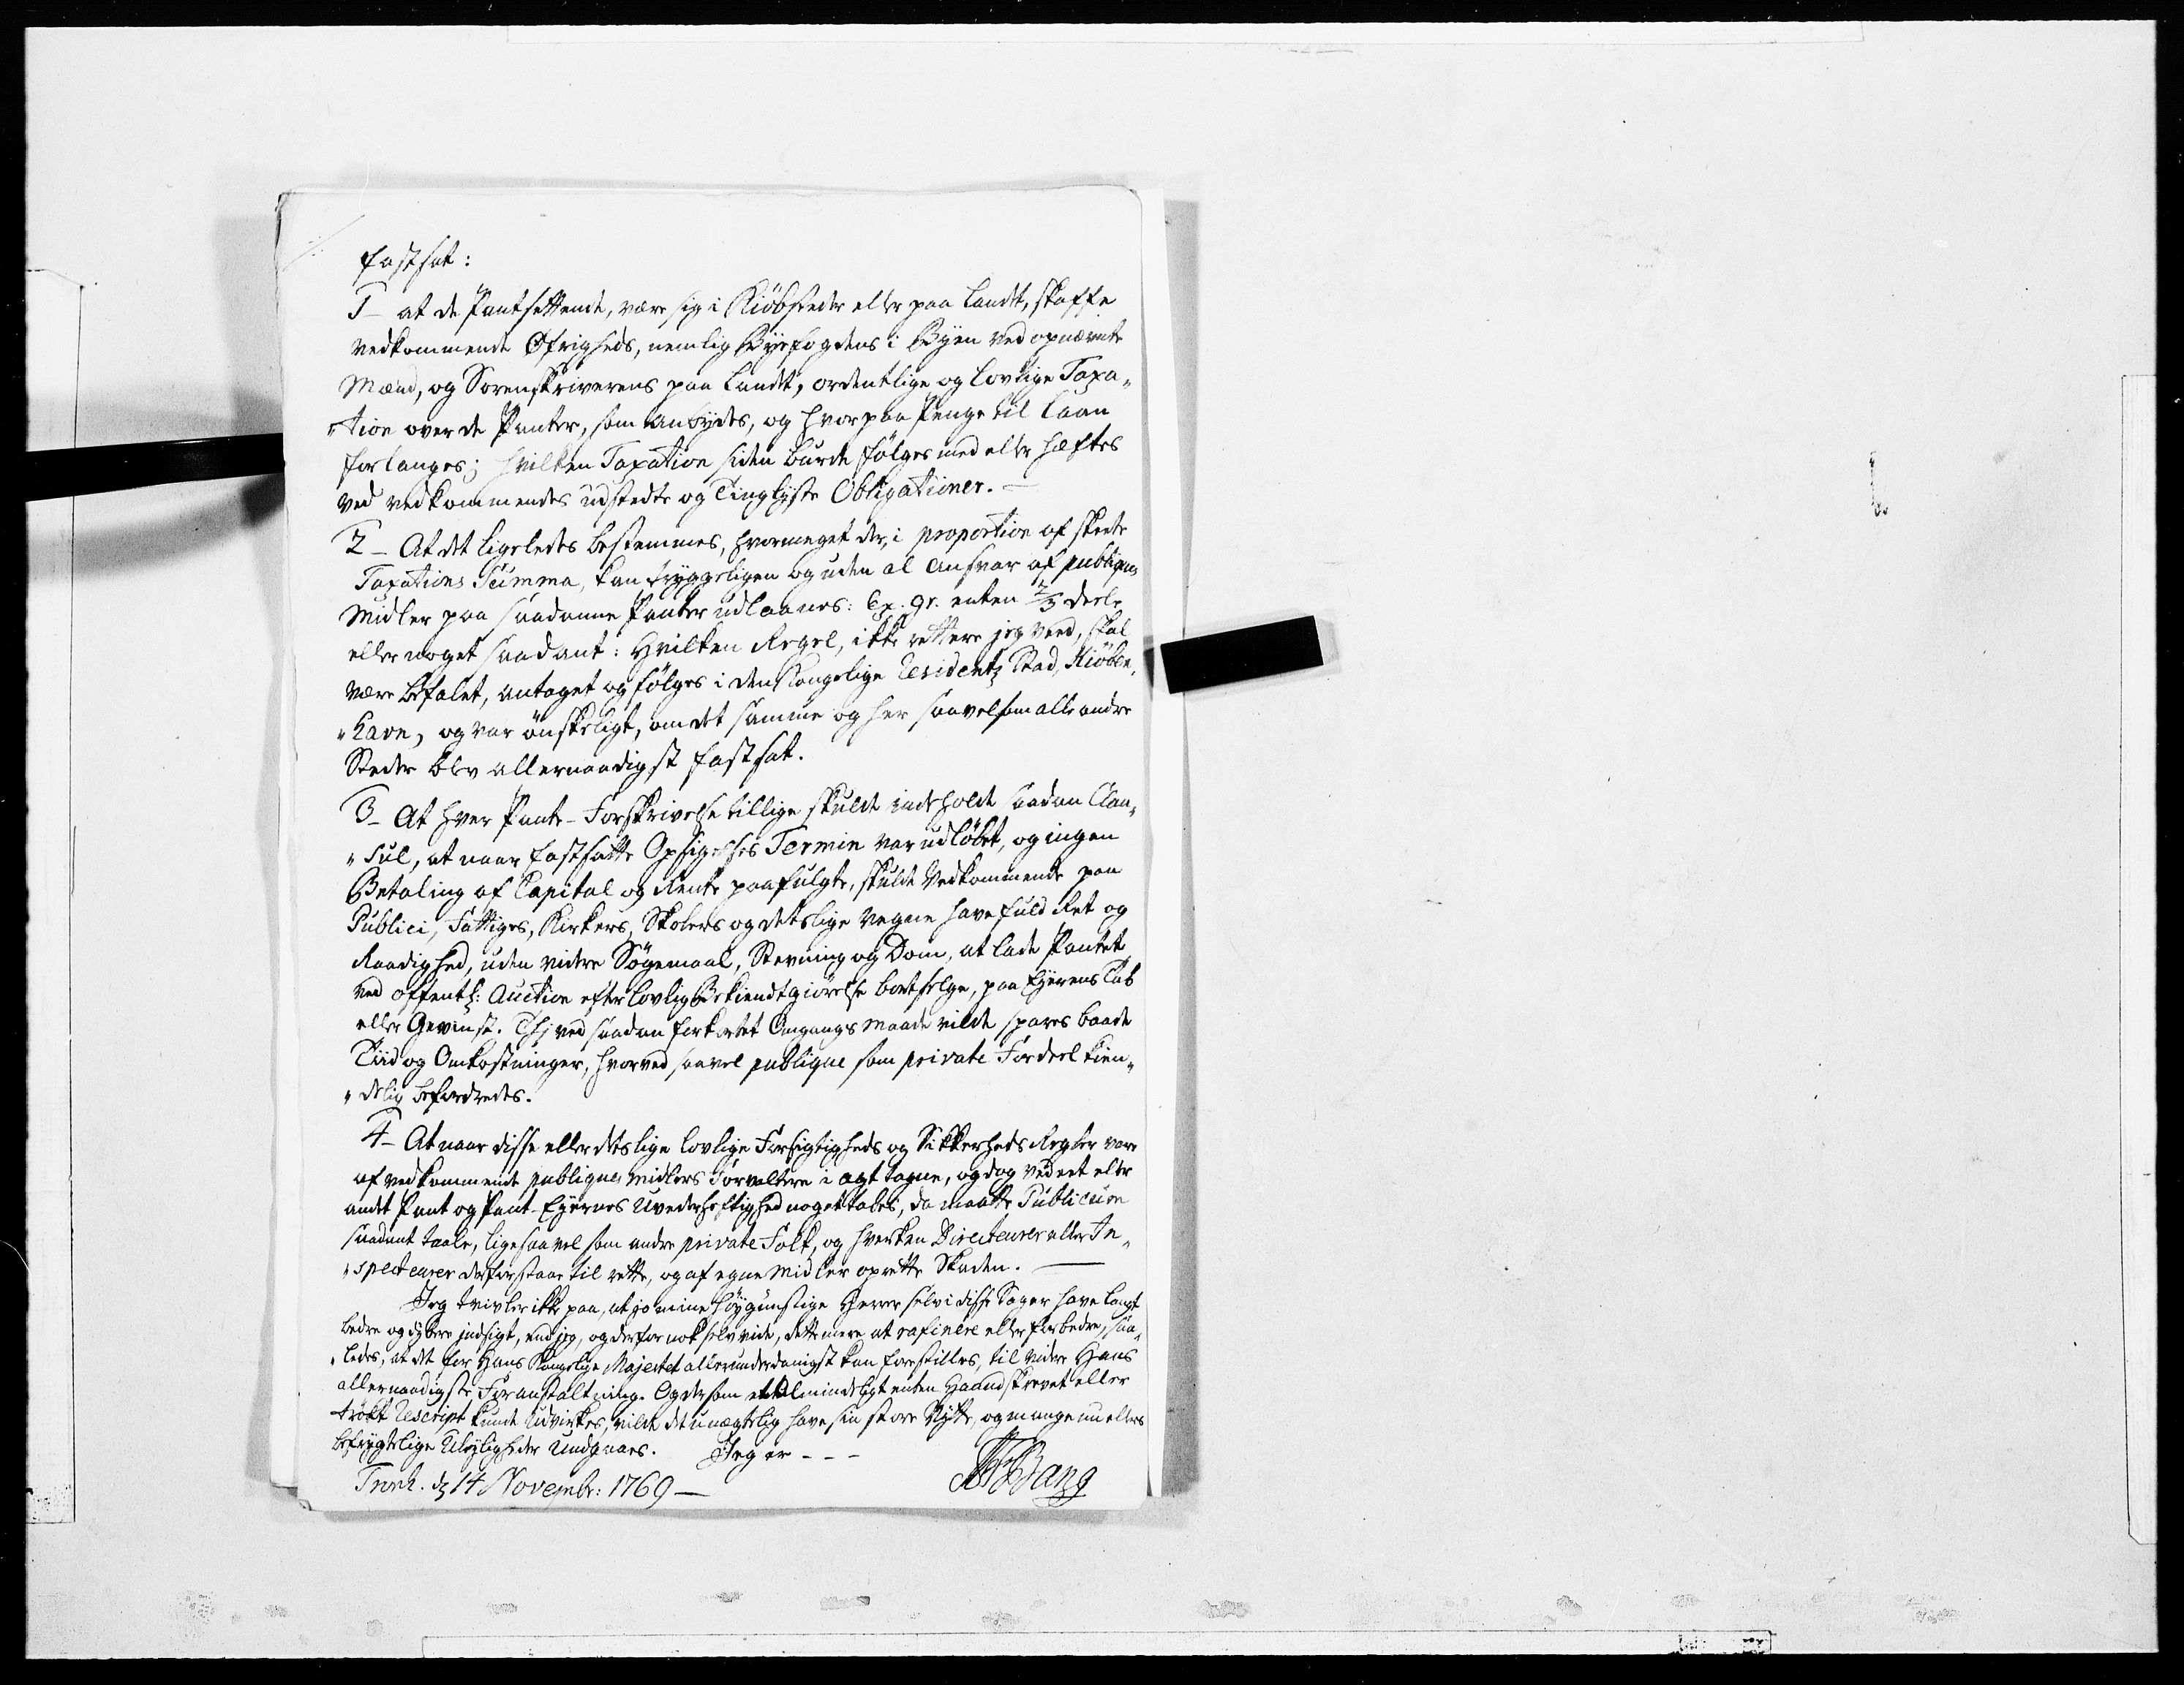 fastsat:
1 - at de Pantsettende, være sig i Kiöbsteder eller paa Landet, skaffe
vedkommende Øfrigheds, nemlig Byefogdens i Byen ved opnævnte
Mænd, og Sorenskriverens paa Landet, ordentlige og lovlige Taxa„
„tion over de Panter, som anbydes, og hvorpaa Penge til Laan
forlanges; hvilken Taxation siden burde fölges med eller hæftes
ved vedkommendes udstedte og Tinglyste Obligationer. -
2 - At det ligeledes bestemmes, hvormeget der, i proportion af skeete
Taxations Summa, kan tryggeligen og uden al Ansvar af publiques
Midler paa saadanne Panter udlaanes: Ex. gr. enten 2/3 deele
eller noget saadant: Hvilken Regel, ikke rettere jeg veed, skal
være befalet, antaget og fölges i den Kongelige Residentz Stad, Kiöben„
„havn, og var önskeligt, om det samme og her saavelsom alle andre
Steder blev allernaadigst fastsat.
3 - At hver Pante-Forskrivelse tillige skulde indeholde saadan Clau„
„sul, at naar fastsatte Opsigelses Termin var udlöbet, og ingen
Betaling af Capital og Rente paafulgte, skulde Vedkommende paa
Publici, Fattiges, Kirkers, Skolers og detslige vegne have fuld Ret og
Raadighed, uden videre Sögemaal, Stevning og Dom, at lade Pantet
ved offentl: Auction efter lovlig Bekiendtgiörelse bortselge, paa Eyerens Tab
eller Gevinst. Thj ved saadan forkortet Omgangs Maade vilde spares baade
Tiid og Omkostninger, hvorved saavel publique som private Fordeel kien„
„delig befordredes.
4 - At naar disse eller detslige lovlige Forsigtigheds og Sikkerheds Regler vare
af vedkommende publiques Midlers Forvaltere i agt tagne, og dog ved eet eller
andet Pant og Pant-Eyernes Uvederheftighed noget tabes, da maatte Publicum
saadant taale, ligesaavel som andre private Folk, og hverken Directeurer eller In„
„specteurer derfor staae til rette, og af egne Midler oprette Skaden. -
Jeg tvivler ikke paa, at jo mine höygunstige Herrer selv i disse Sager have langt
bedre og dybere indsigt, end jeg, og derfor nok selv vide, dette mere at rafinere eller forbedre, saa„
„ledes, at det for Hans Kongelige Majestet allerunderdanigst kan forestilles, til videre Hans
allernaadigste Foranstaltning. Og dersom et Almindeligt enten Haandskrevet eller
trökt Rescript kunde Udvirkes, vilde det unægtelig have sin store Nytte, og mange nu ellers
befrygtelige Uleyligheder Undgaaes. Jeg er - - -
Tronh. d 14 Novembr: 1769 - Bang